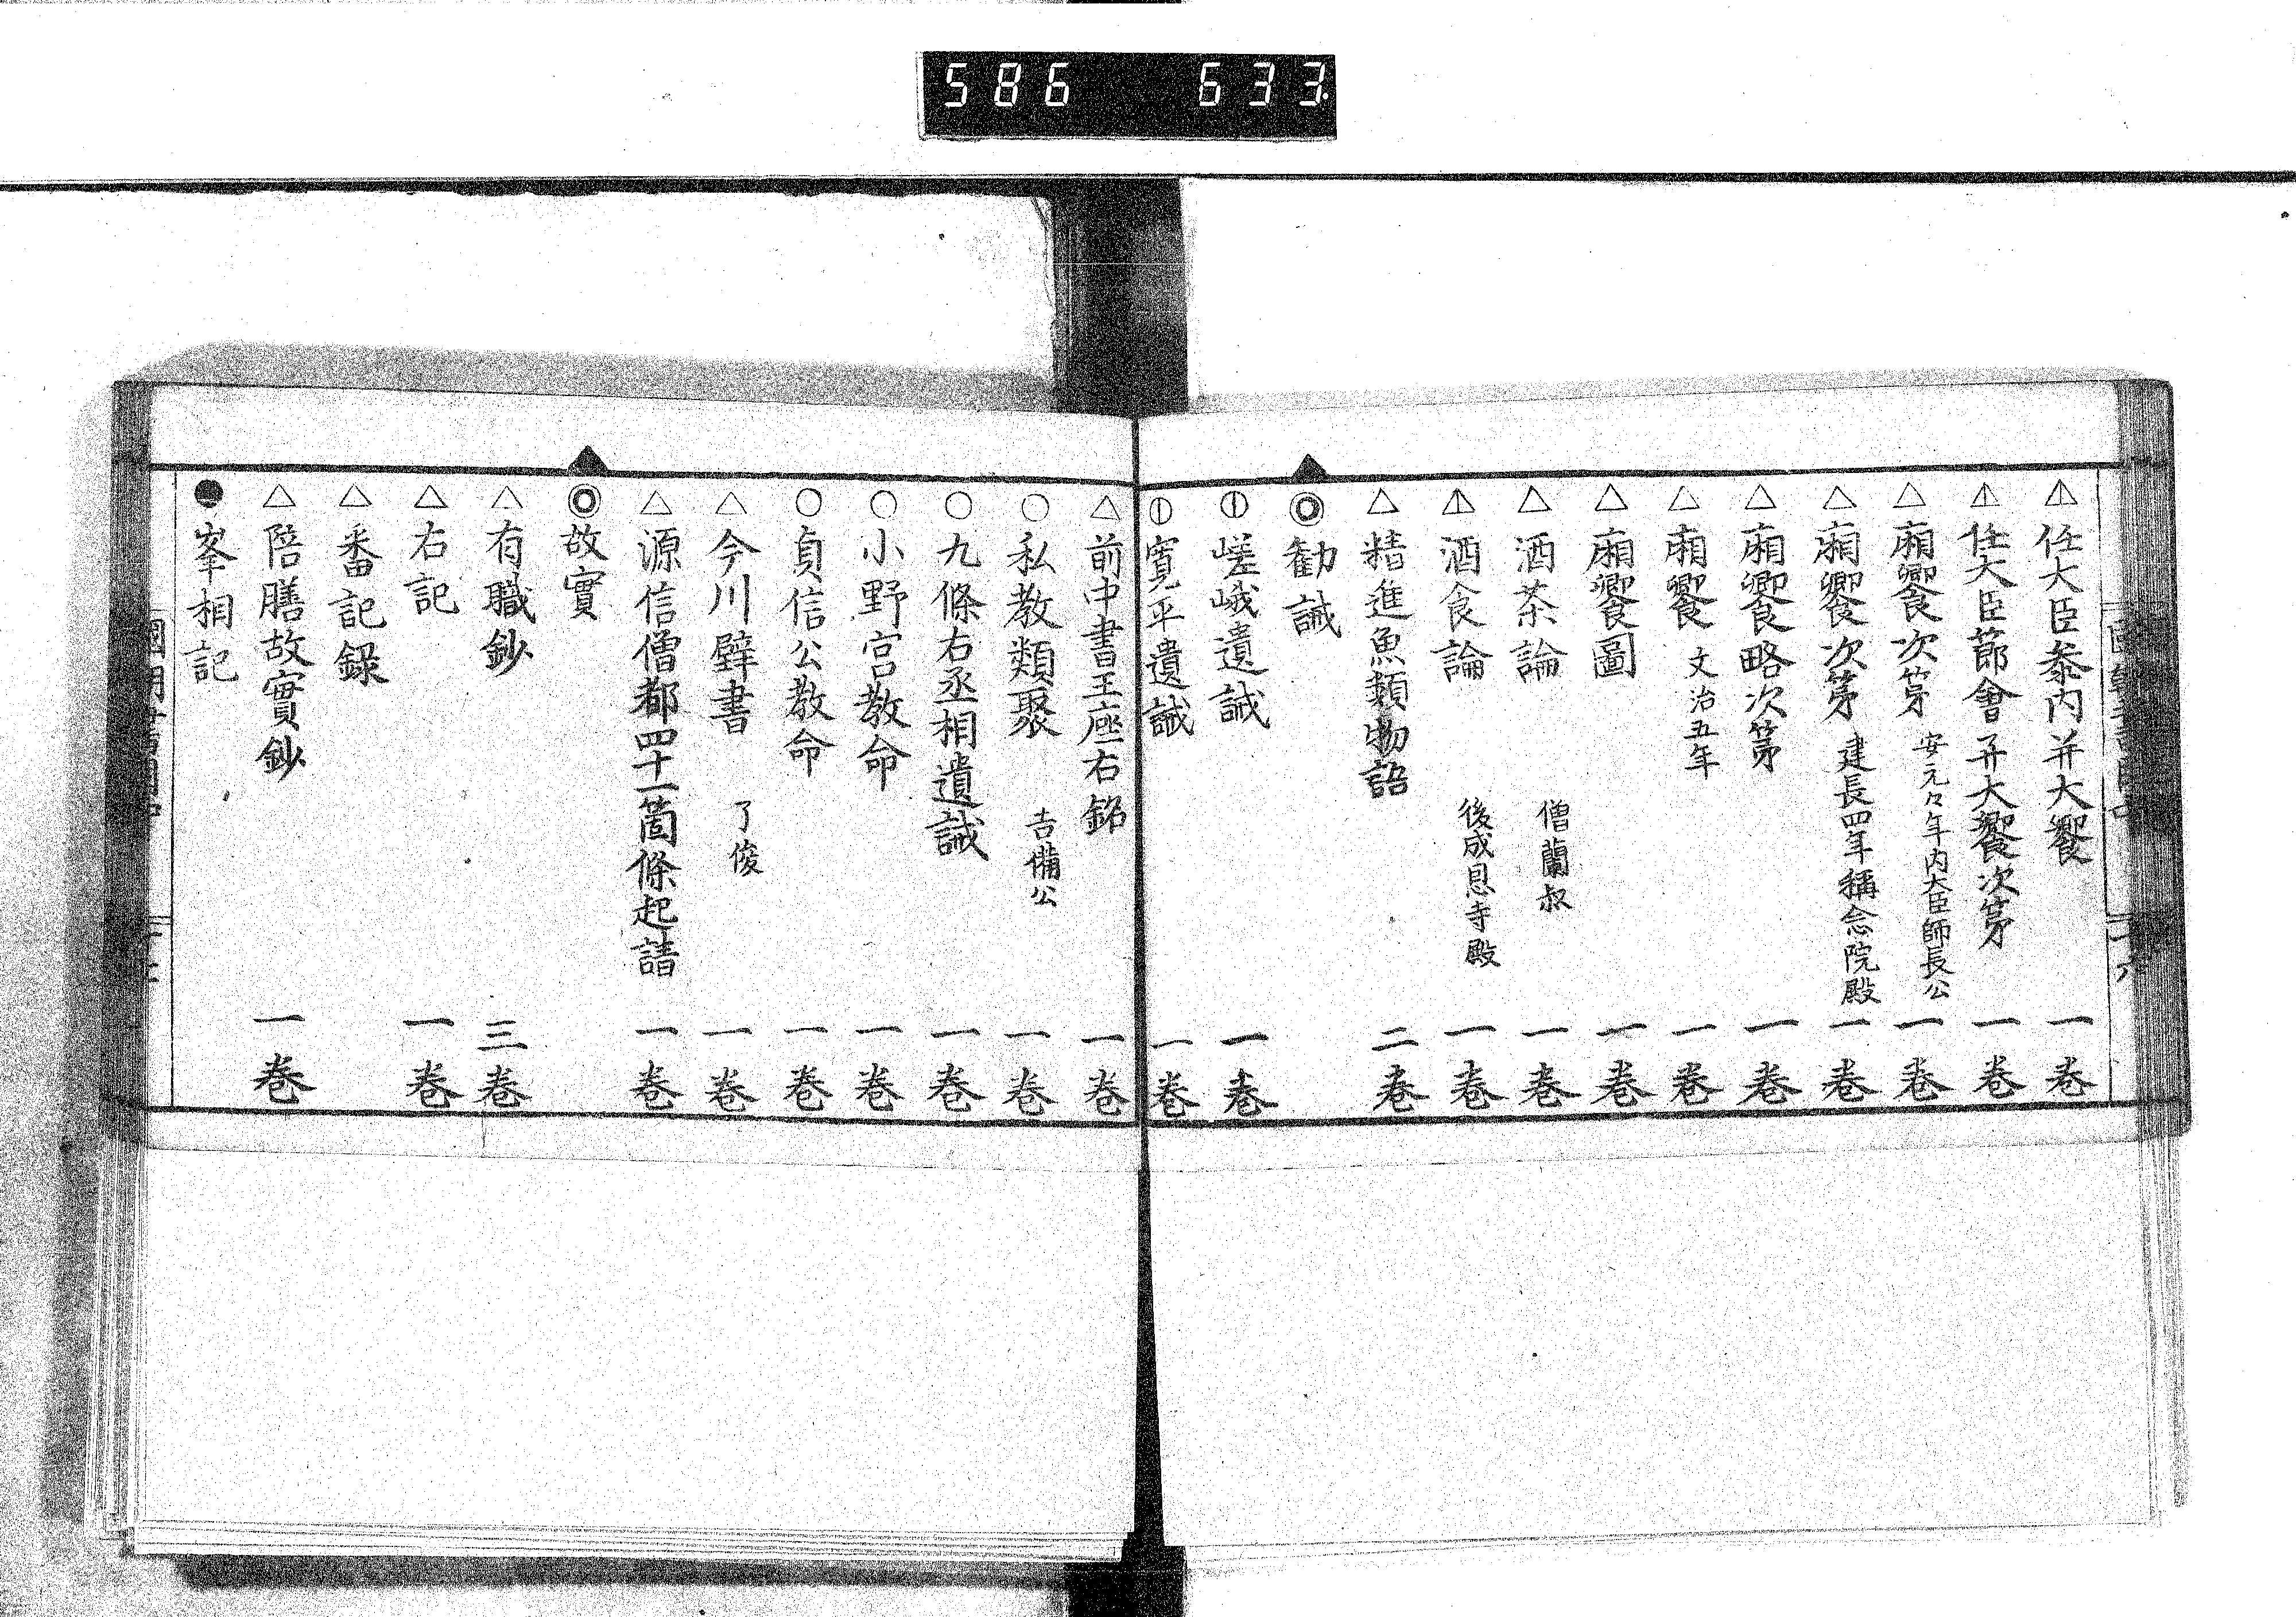 586 633.
任大臣叅内并大饗 一卷
任大臣節會并大饗次第 一卷
△廂饗次第 安元々年内大臣師長公 一卷
△廂饗次第 建長四年稱念院殿 一卷
△廂饗略次第 一卷
△廂饗 文治五年 一卷
△廂饗圖 一卷
△酒茶論 僧蘭叔 一卷
酒食論 後成恩寺殿 一卷
△精進魚類物語 二卷
◎勸誡
⦶嵯峨遺誡 一卷
⦶寬平遺誡 一卷
△前中書王座右銘 一卷
○私教類聚 吉備公 一卷
○九條右丞相遺誡 一卷
○小野宮教命 一卷
○貞信公教命 一卷
△今川壁書 了俊 一卷
△源信僧都四十一箇條起請 一卷
◎故實
△有職鈔 三卷
△右記 一卷
△番記録
△陪膳故實鈔 一卷
●峯相記